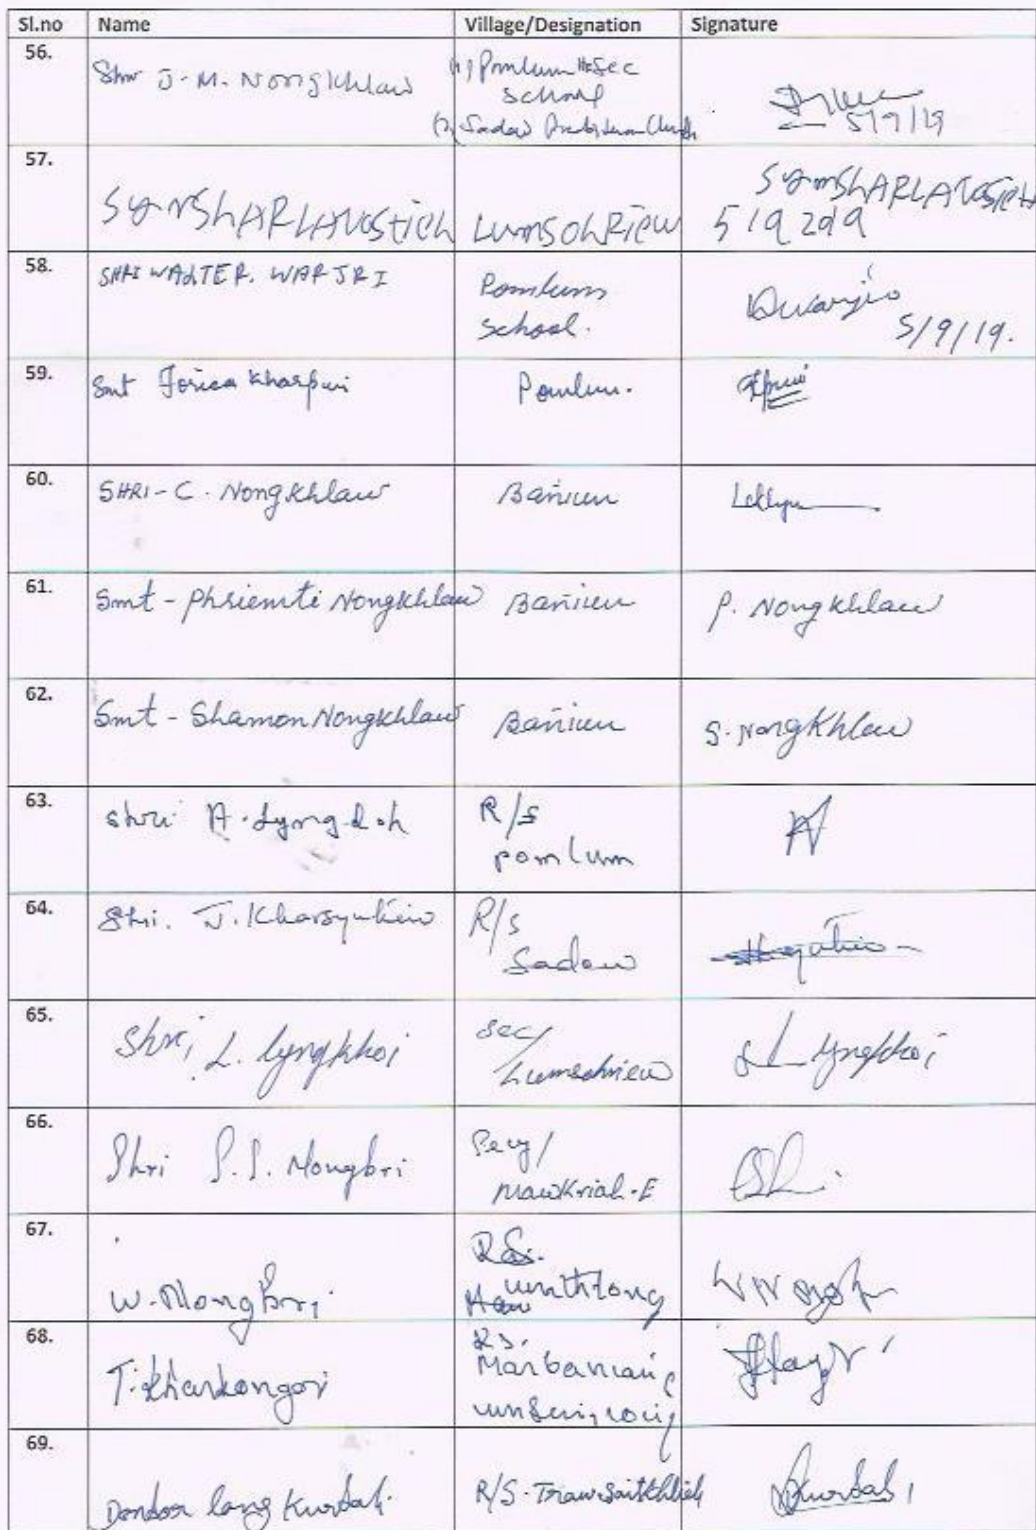 Sl.no Name Village/Designation Signature
56. Shri J. M. Nongkhlaw (1) Pomlum Hr Sec
School
(2) Sadew Presbyterian Church
5/9/19
57. SYNSHARLANGSTIEH LUMSOHRIEW SYNSHARLANGSTIEH
5/9 2019
58. SHRI WALTER. WARJRI Pomlum
School.
5/9/19.
59. Smt Kharpuri Pomlum.
60. SHRI-C. Nongkhlaw Bañiun
61. Smt - Phriemti Nongkhlaw Bañiun P. Nongkhlaw
62. Smt - Shamon Nongkhlaw Bañiun S. Nongkhlaw
63. Shri A. Lyngdoh R/S
pomlum
64. Shri. J. Kharsyntiew R/S
Sadew
65. Shri, L. lyngkhoi Sec/
Lumsohriew L lyngkhoi
66. Shri S.S. Nongbri Secy/
Mawkriah-E
67. W. Nongbri R.S.
umthlong
68. T. Kharkongor R.S.
Marbaniang
69. Dondor lang Kurbah. R/S. Trawsaitkhlieh Kurbah